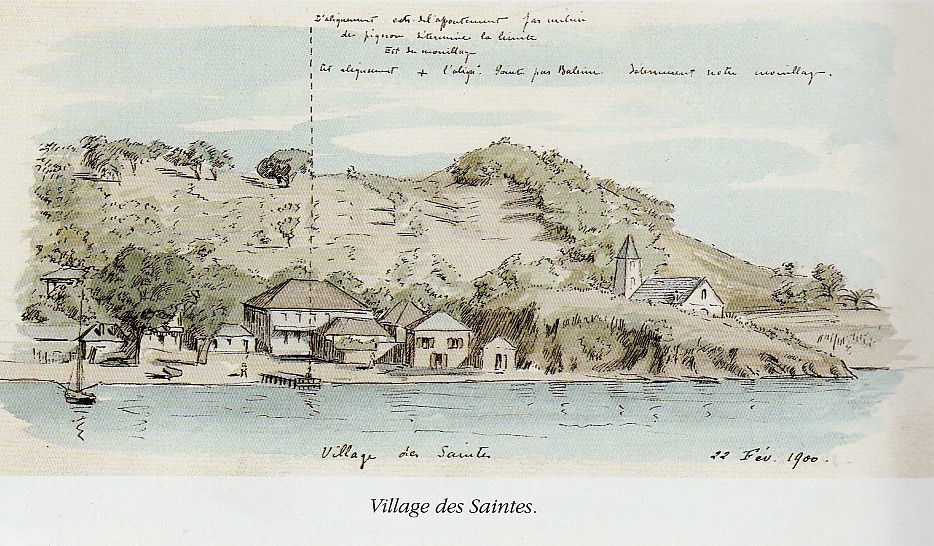 L'alignement extr. de l'appontement par milieu
de pignon détermine la limite
Est du mouillage
Cet alignement + l'align.t Pointe pas Baleine déterminent notre mouillage.
Village des Saintes
22 Fév. 1900.
Village des Saintes.